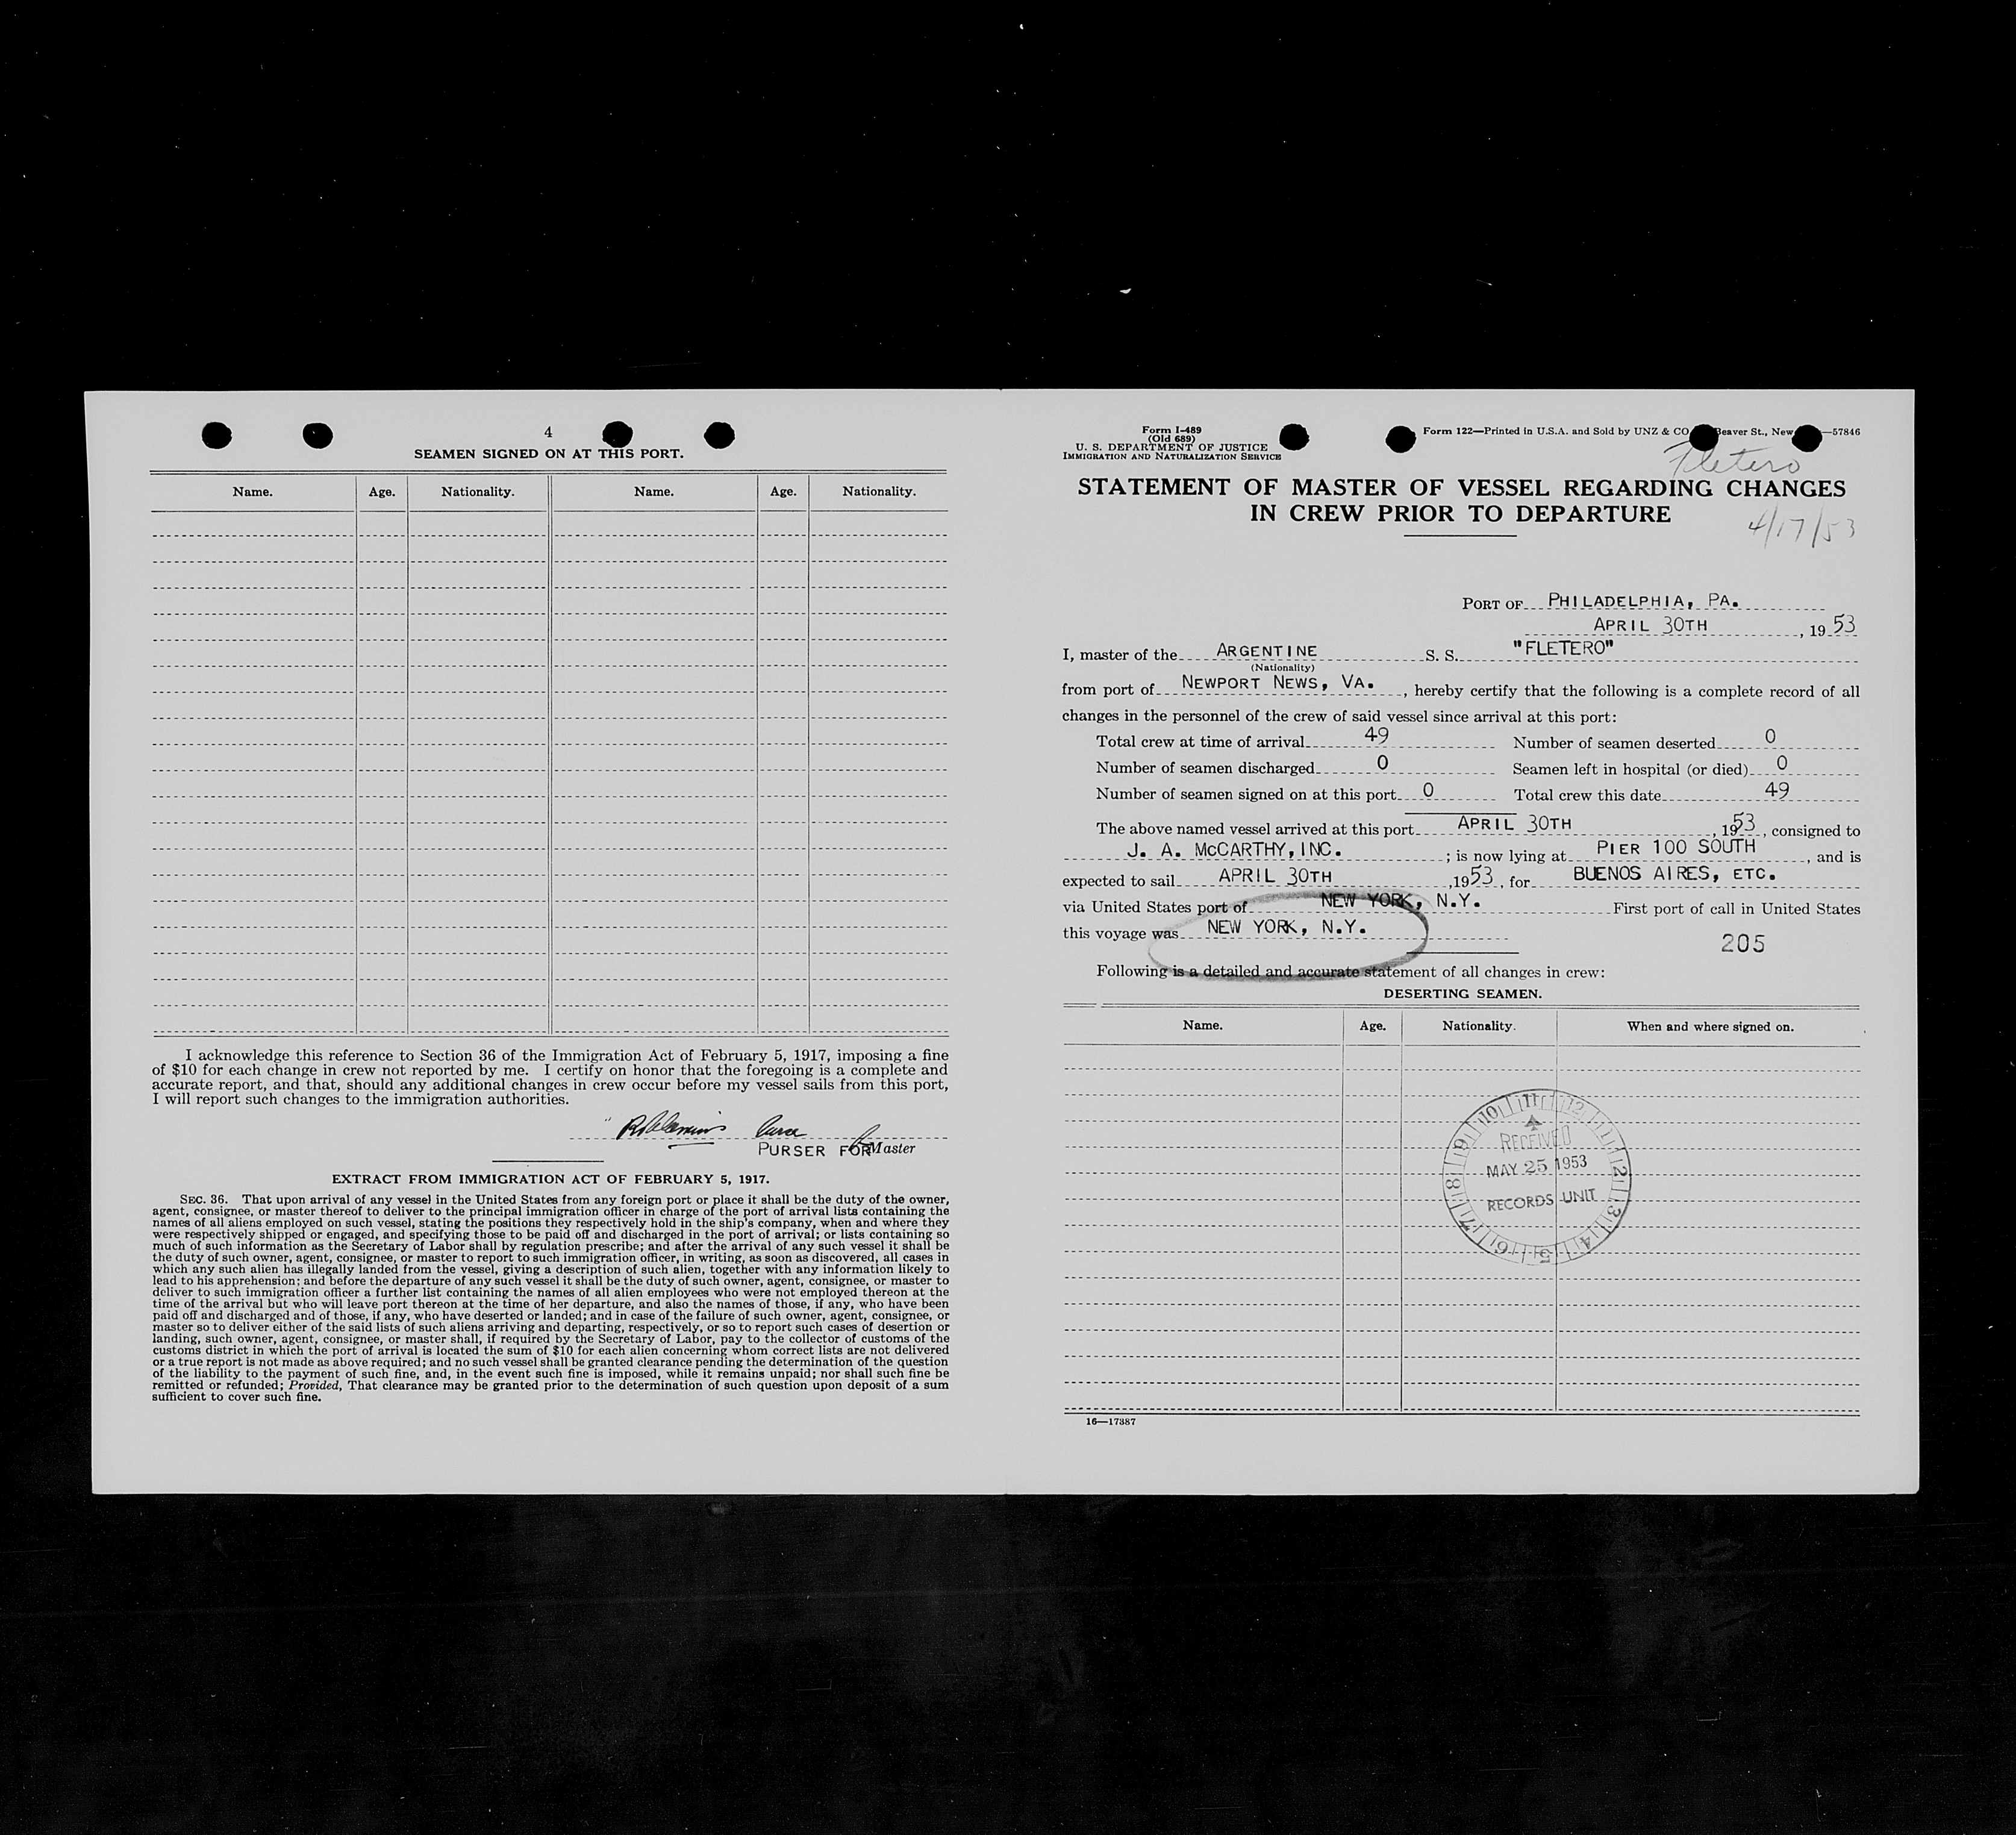 4
SEAMEN SIGNED ON AT THIS PORT.
Name. Age. Nationality. Name. Age. Nationality.
I acknowledge this reference to Section 36 of the Immigration Act of February 5, 1917, imposing a fine
of $10 for each change in crew not reported by me. I certify on honor that the foregoing is a complete and
accurate report, and that, should any additional changes in crew occur before my vessel sails from this port,
I will report such changes to the immigration authorities.
PURSER FOR Master
EXTRACT FROM IMMIGRATION ACT OF FEBRUARY 5, 1917.
SEC. 36. That upon arrival of any vessel in the United States from any foreign port or place it shall be the duty of the owner,
agent, consignee, or master thereof to deliver to the principal immigration officer in charge of the port of arrival lists containing the
names of all aliens employed on such vessel, stating the positions they respectively hold in the ship's company, when and where they
were respectively shipped or engaged, and specifying those to be paid off and discharged in the port of arrival; or lists containing so
much of such information as the Secretary of Labor shall by regulation prescribe; and after the arrival of any such vessel it shall be
the duty of such owner, agent, consignee, or master to report to such immigration officer, in writing, as soon as discovered, all cases in
which any such alien has illegally landed from the vessel, giving a description of such alien, together with any information likely to
lead to his apprehension; and before the departure of any such vessel it shall be the duty of such owner, agent, consignee, or master to
deliver to such immigration officer a further list containing the names of all alien employees who were not employed thereon at the
time of the arrival but who will leave port thereon at the time of her departure, and also the names of those, if any, who have been
paid off and discharged and of those, if any, who have deserted or landed; and in case of the failure of such owner, agent, consignee, or
master so to deliver either of the said lists of such aliens arriving and departing, respectively, or so to report such cases of desertion or
landing, such owner, agent, consignee, or master shall, if required by the Secretary of Labor, pay to the collector of customs of the
customs district in which the port of arrival is located the sum of $10 for each alien concerning whom correct lists are not delivered
or a true report is not made as above required; and no such vessel shall be granted clearance pending the determination of the question
of the liability to the payment of such fine, and, in the event such fine is imposed, while it remains unpaid; nor shall such fine be
remitted or refunded; Provided, That clearance may be granted prior to the determination of such question upon deposit of a sum
sufficient to cover such fine.
Form I-489
(Old 689)
U. S. DEPARTMENT OF JUSTICE
IMMIGRATION AND NATURALIZATION SERVICE
Form 122—Printed in U.S.A. and Sold by UNZ & CO Beaver St., New —57846
Fletero
STATEMENT OF MASTER OF VESSEL REGARDING CHANGES
IN CREW PRIOR TO DEPARTURE
4/17/53
PORT OF PHILADELPHIA, PA.
APRIL 30TH, 1953
I, master of the ARGENTINE S. S. "FLETERO"
(Nationality)
from port of NEWPORT NEWS, VA., hereby certify that the following is a complete record of all
changes in the personnel of the crew of said vessel since arrival at this port:
Total crew at time of arrival 49 Number of seamen deserted 0
Number of seamen discharged 0 Seamen left in hospital (or died) 0
Number of seamen signed on at this port 0 Total crew this date 49
The above named vessel arrived at this port APRIL 30TH, 1953, consigned to
J. A. McCARTHY, INC.; is now lying at PIER 100 SOUTH, and is
expected to sail APRIL 30TH, 1953, for BUENOS AIRES, ETC.
via United States port of NEW YORK, N.Y. First port of call in United States
this voyage was NEW YORK, N.Y.
205
Following is a detailed and accurate statement of all changes in crew:
DESERTING SEAMEN.
Name. Age. Nationality. When and where signed on.
11 12 1 2 3 4 5 6 7 8 9 10
RECEIVED
MAY 25 1953
RECORDS UNIT
16—17387